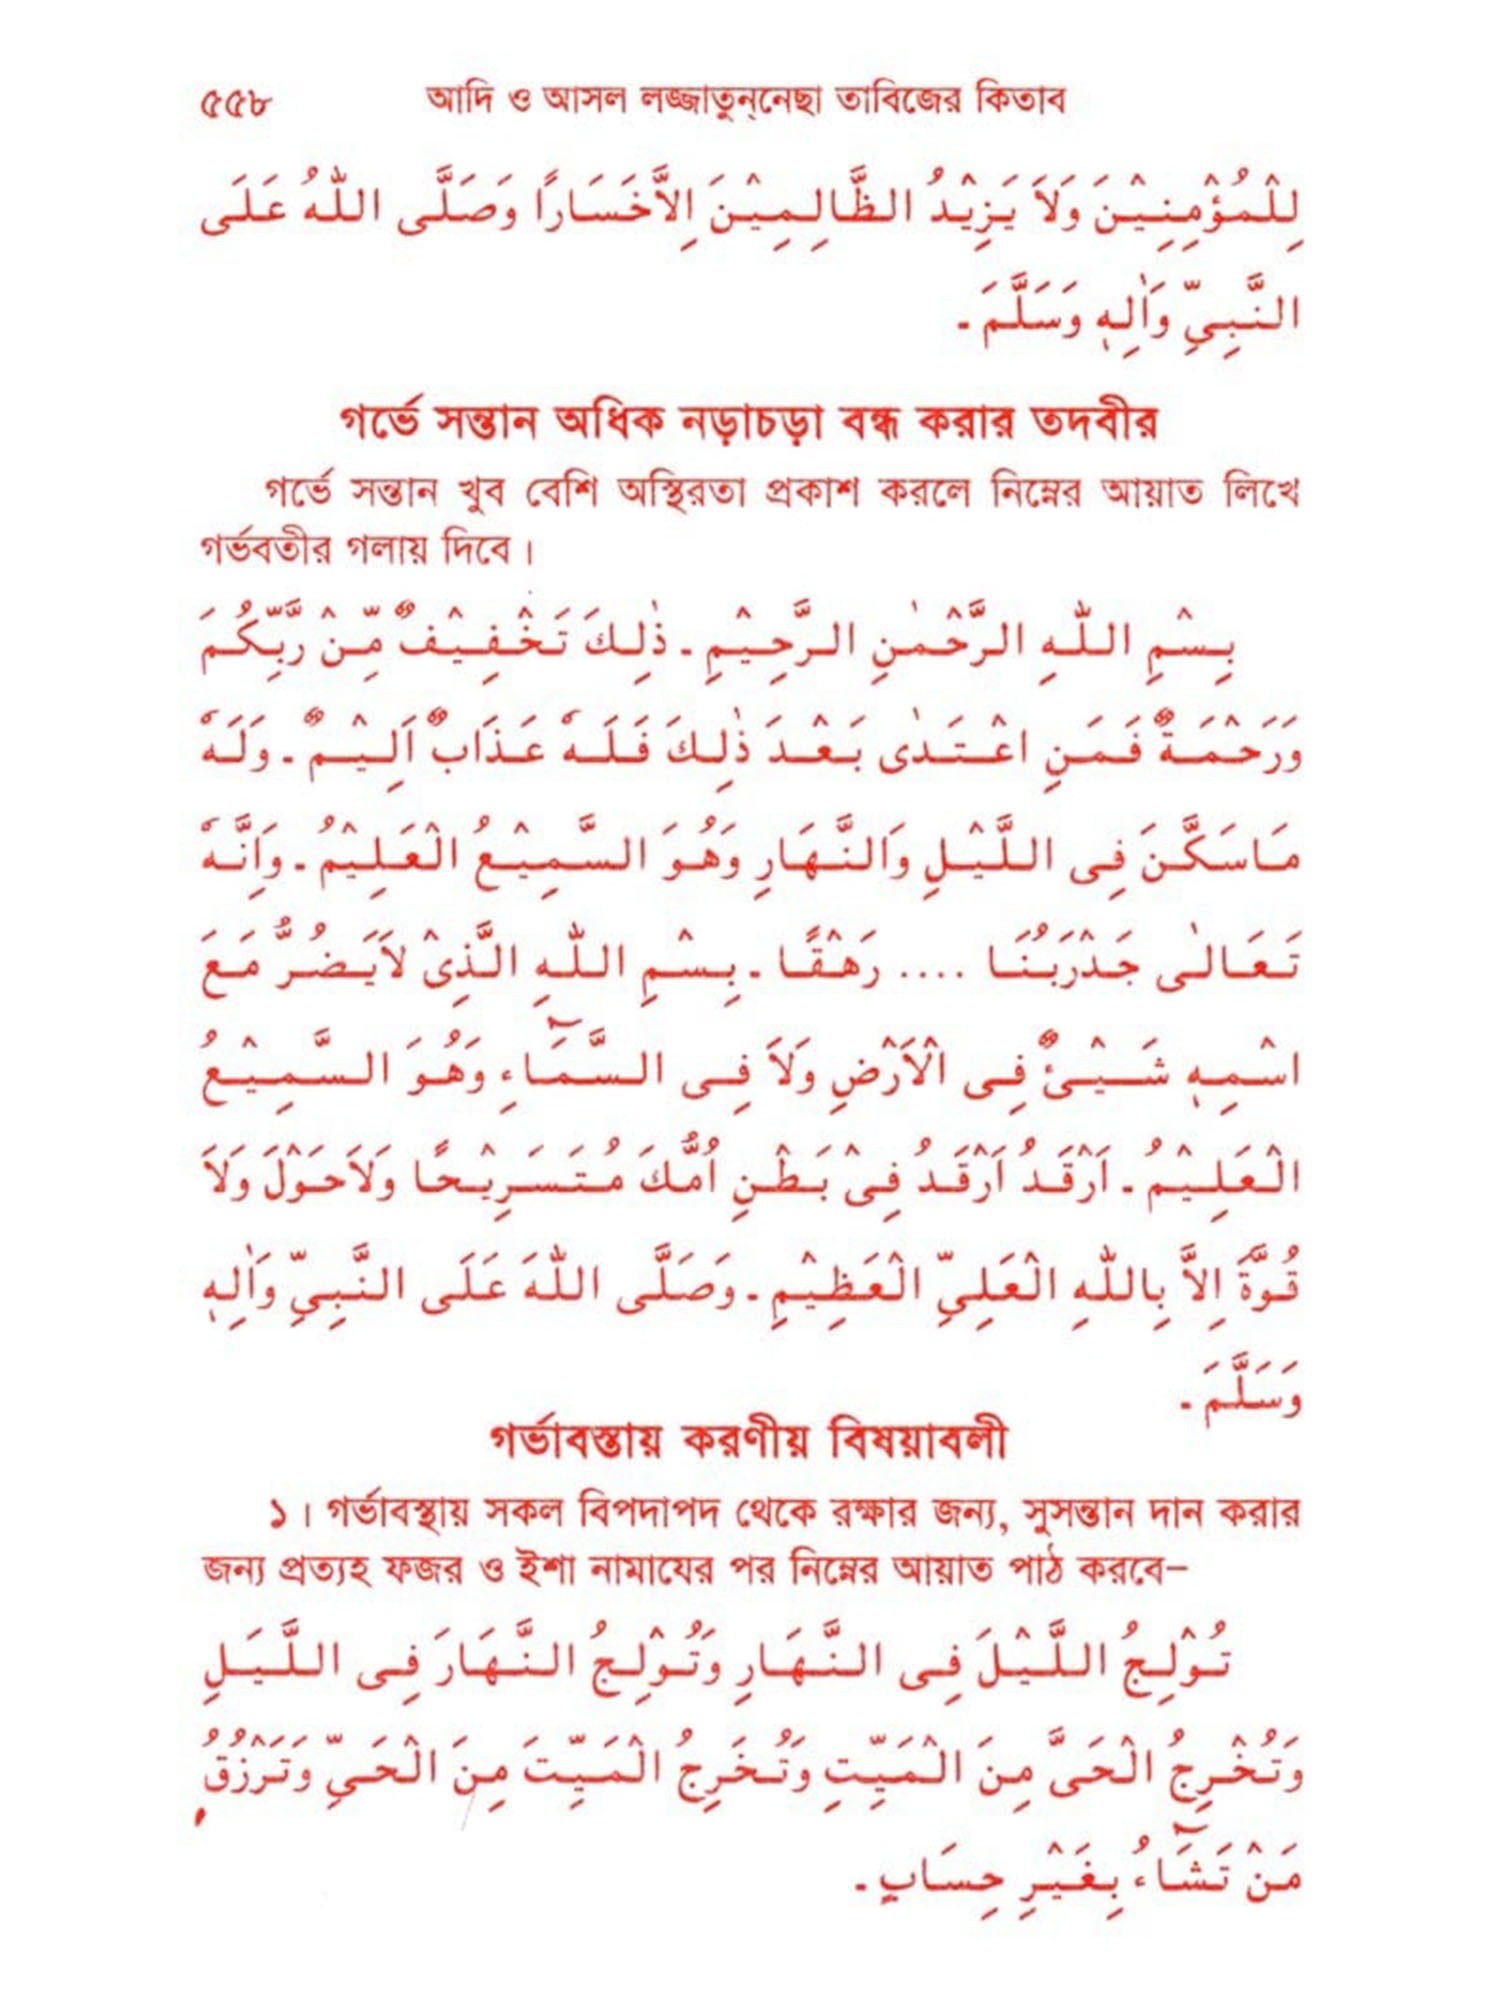 ৫৫৮ আদি ও আসল লজ্জাতুন্‌নেছা তাবিজের কিতাব
لِلْمُؤْمِنِيْنَ وَلَا يَزِيْدُ الظَّالِمِيْنَ اِلَّاخَسَارًا وَصَلَّى اللّٰهُ عَلَى
النَّبِىِّ وَاٰلِهٖ وَسَلَّمَ ـ
গর্ভে সন্তান অধিক নড়াচড়া বন্ধ করার তদবীর
গর্ভে সন্তান খুব বেশি অস্থিরতা প্রকাশ করলে নিম্নের আয়াত লিখে
গর্ভবতীর গলায় দিবে।
بِسْمِ اللّٰهِ الرَّحْمٰنِ الرَّحِيْمِ ـ ذٰلِكَ تَخْفِيْفٌ مِّنْ رَّبِّكُمَ
وَرَحْمَةٌ فَمَنِ اعْتَدٰى بَعْدَ ذٰلِكَ فَلَهٗ عَذَابٌ اَلِيْمٌ ـ وَلَهٗ
مَاسَكَّنَ فِى اللَّيْلِ وَالنَّهَارِ وَهُوَ السَّمِيْعُ الْعَلِيْمُ ـ وَاِنَّهٗ
تَعَالٰى جَدْرَبُنَا .... رَهْقًا ـ بِسْمِ اللّٰهِ الَّذِىْ لَايَضُرُّ مَعَ
اسْمِهٖ شَيْئٌ فِى الْاَرْضِ وَلَا فِى السَّمَآءِ وَهُوَ السَّمِيْعُ
الْعَلِيْمُ ـ اَرْقَدُ اَرْقَدُ فِىْ بَطْنِ اُمُّكَ مُتَسَرِيْحًا وَلَاحَوْلَ وَلَا
قُوَّةَ اِلَّا بِاللّٰهِ الْعَلِىِّ الْعَظِيْمِ ـ وَصَلَّى اللّٰهَ عَلَى النَّبِىِّ وَاٰلِهٖ
وَسَلَّمَ ـ
গর্ভাবস্তায় করণীয় বিষয়াবলী
১। গর্ভাবস্থায় সকল বিপদাপদ থেকে রক্ষার জন্য, সুসন্তান দান করার
জন্য প্রত্যহ ফজর ও ইশা নামাযের পর নিম্নের আয়াত পাঠ করবে–
تُوْلِجُ اللَّيْلَ فِى النَّهَارِ وَتُوْلِجُ النَّهَارَ فِى اللَّيَلِ
وَتُخْرِجُ الْحَىَّ مِنَ الْمَيِّتِ وَتُخَرِجُ الْمَيِّتَ مِنَ الْحَىِّ وَتَرْزُقُ
مَنْ تَشَآءُ بِغَيْرِ حِسَابٍ ـ